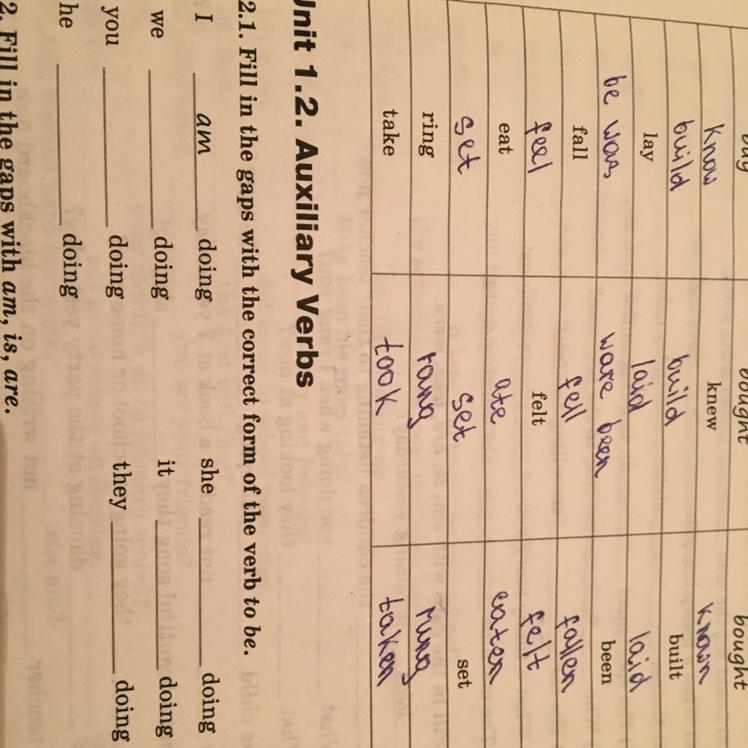 buy bought bought
know knew known
build build built
lay laid laid
be was ware been been
fall fell fallen
feel felt felt
eat ate eaten
set set set
ring rang rung
take took taken
Unit 1.2. Auxiliary Verbs
2.1. Fill in the gaps with the correct form of the verb to be.
I am doing she doing
we doing it doing
you doing they doing
he doing
2. Fill in the gaps with am, is, are.